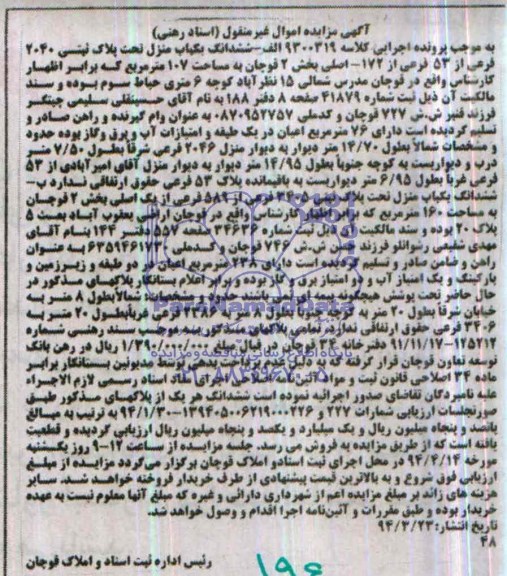 آگهی مزایده اموال غیرمنقول (اسناد رهنی)
به موجب پرونده اجرایی کلاسه ۹۳۰۰۳۱۹ الف-ششدانگ یکباب منزل تحت پلاک ثبتی ۲۰۴۰
فرعی از ۵۳ فرعی از ۱۷۲- اصلی بخش ۲ قوچان به مساحت ۱۰۷ مترمربع که برابر اظهار
کارشناس واقع در قوچان مدرس شمالی ۱۵ نظرآباد کوچه ۶ متری حیاط سوم بوده و سند
مالکیت آن ذیل ثبت شماره ۴۱۸۷۹ صفحه ۸ دفتر ۱۸۸ به نام آقای حسینقلی سلیمی چیتگر
فرزند قنبر ش.ش ۷۲۷ قوچان و کدملی ۰۸۷۰۹۵۲۷۵۷ به عنوان وام گیرنده و راهن صادر و
تسلیم گردیده است دارای ۷۶ مترمربع اعیان در یک طبقه و امتیازات آب و برق وگاز بوده حدود
و مشخصات شمالا بطول ۱۴/۷۰ متر دیوار به دیوار منزل ۲۰۴۶ فرعی شرقاً بطول ۷/۵۰ متر
درب و دیواریست به کوچه جنوباً بطول ۱۴/۹۵ متر دیوار به دیوار منزل آقای امیرآبادی از ۵۳
فرعی غرباً بطول ۶/۹۵ متر دیواریست به باقیمانده پلاک ۵۳ فرعی حقوق ارتفاقی ندارد ب-
ششدانگ یکباب منزل تحت پلاک ثبتی ۳۴۰۵ فرعی از ۵۸۹ فرعی از یک اصلی بخش ۲ قوچان
به مساحت ۱۶۰ مترمربع که برابر اظهار کارشناس واقع در قوچان اراضی یعقوب آباد بعثت ۵
پلاک ۲۰ بوده و سند مالکیت آن ذیل ثبت شماره ۳۴۶۳۶ صفحه ۵۵۷ دفتر ۱۴۳ بنام آقای
مهدی شفیعی رشوانلو فرزند ش.ش ۷۴۶ قوچان و کدملی به عنوان
راهن و ضامن صادر و تسلیم گردیده است دارای ۲۳۸ مترمربع اعیان در دو طبقه و زیرزمین و
پارکینگ و یک امتیاز آب و دو امتیاز برق و گاز بوده و برابر اعلام بستانکار پلاکهای مذکور در
حال حاضر تحت پوشش هیچگونه بیمه ای نمی باشند حدود و مشخصات: شمالاً بطول ۸ متر به
خیابان شرقاً بطول ۲۰ متر به کوچه جنوباً بطول ۸ متر به فرعی غرباً بطول ۲۰ متر به
۳۴۰۴ فرعی حقوق ارتفاقی ندارد، تمامی پلاکهای مذکور به موجب سند رهنی شماره
۱۲۵۲۱۲-۹۱/۱۱/۱۷ دفترخانه ۳۴ قوچان در قبال مبلغ ۱/۳۹۰/۰۰۰/۰۰۰ ریال در رهن بانک
توسعه تعاون قوچان قرار گرفته که به علت عدم پرداخت بدهی توسط مدیونین بستانکار برابر
ماده ۳۴ اصلاحی قانون ثبت و مواد آئین نامه اجرای مفاد اسناد رسمی لازم الاجراء
علیه نامبردگان تقاضای صدور اجرائیه نموده است ششدانگ هر یک از پلاکهای مذکور طبق
صورتجلسات ارزیابی شمارات ۲۲۷ و ۱۳۹۴۰۵۰۰۶۲۱۹۰۰۰۲۲۶-۹۴/۱/۳۰ به ترتیب به مبالغ
پانصد و پنجاه میلیون ریال و یک میلیارد و یکصد و پنجاه میلیون ریال ارزیابی گردیده و قطعیت
یافته است که از طریق مزایده به فروش می رسد. جلسه مزایده از ساعت ۱۲-۹ روز یکشنبه
مورخه ۹۴/۴/۱۴ در محل اجرای ثبت اسناد و املاک قوچان برگزار می گردد مزایده از مبلغ
ارزیابی فوق شروع و به بالاترین قیمت پیشنهادی از طرف خریدار فروخته خواهد شد. سایر
هزینه های زائد بر مبلغ مزایده اعم از شهرداری دارائی و غیره که مبلغ آنها معلوم نیست به عهده
خریدار بوده و طبق مقررات و آئین نامه اجرا اقدام و وصول خواهد شد.
تاریخ انتشار: ۹۴/۳/۲۳
۴۸
رئیس اداره ثبت اسناد و املاک قوچان
۱۹۶